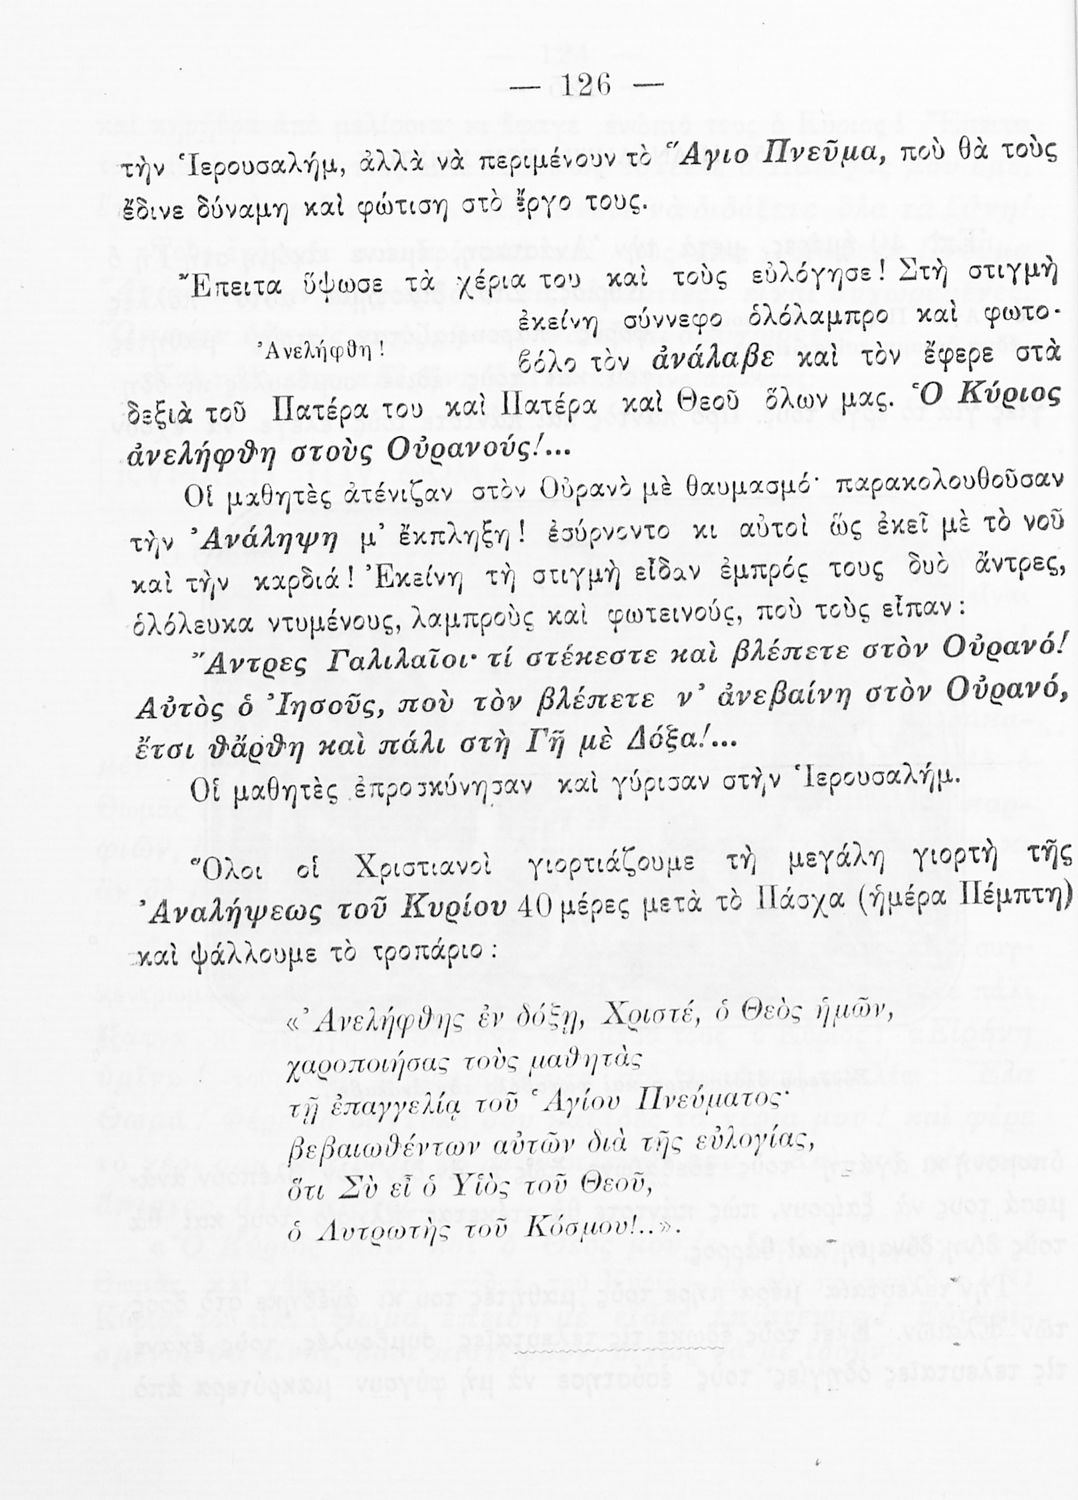 — 126 —
τὴν Ἱερουσαλήμ, ἀλλὰ νὰ περιμένουν τὸ Ἅγιο Πνεῦμα, ποὺ θὰ τοὺς
ἔδινε δύναμη καὶ φώτιση στὸ ἔργο τους.
Ἔπειτα ὕψωσε τὰ χέρια του καὶ τοὺς εὐλόγησε! Στὴ στιγμὴ
ἐκείνη σύννεφο ὁλόλαμπρο καὶ φωτο-
Ἀνελήφθη!
βόλο τὸν ἀνάλαβε καὶ τὸν ἔφερε στὰ
δεξιὰ τοῦ Πατέρα του καὶ Πατέρα καὶ Θεοῦ ὅλων μας. Ὁ Κύριος
ἀνελήφθη στοὺς Οὐρανούς!...
Οἱ μαθητὲς ἀτένιζαν στὸν Οὐρανὸ μὲ θαυμασμό· παρακολουθοῦσαν
τὴν Ἀνάληψη μ' ἔκπληξη! ἐσύρνοντο κι αὐτοὶ ὥς ἐκεῖ μὲ τὸ νοῦ
καὶ τὴν καρδιά! Ἐκείνη τὴ στιγμὴ εἶδαν ἐμπρός τους δυὸ ἄντρες,
ὁλόλευκα ντυμένους, λαμπροὺς καὶ φωτεινούς, ποὺ τοὺς εἶπαν:
Ἄντρες Γαλιλαῖοι· τί στέκεστε καὶ βλέπετε στὸν Οὐρανό!
Αὐτὸς ὁ Ἰησοῦς, ποὺ τὸν βλέπετε ν' ἀνεβαίνη στὸν Οὐρανό,
ἔτσι θἄρθη καὶ πάλι στὴ Γῆ μὲ Δόξα!...
Οἱ μαθητὲς ἐπροσκύνησαν καὶ γύρισαν στὴν Ἱερουσαλήμ.
Ὅλοι οἱ Χριστιανοὶ γιορτιάζουμε τὴ μεγάλη γιορτὴ τῆς
Ἀναλήψεως τοῦ Κυρίου 40 μέρες μετὰ τὸ Πάσχα (ἡμέρα Πέμπτη)
καὶ ψάλλουμε τὸ τροπάριο:
«Ἀνελήφθης ἐν δόξῃ, Χριστέ, ὁ Θεὸς ἡμῶν,
χαροποιήσας τοὺς μαθητὰς
τῇ ἐπαγγελίᾳ τοῦ Ἁγίου Πνεύματος·
βεβαιωθέντων αὐτῶν διὰ τῆς εὐλογίας,
ὅτι Σὺ εἶ ὁ Υἱὸς τοῦ Θεοῦ,
ὁ Λυτρωτὴς τοῦ Κόσμου!..».